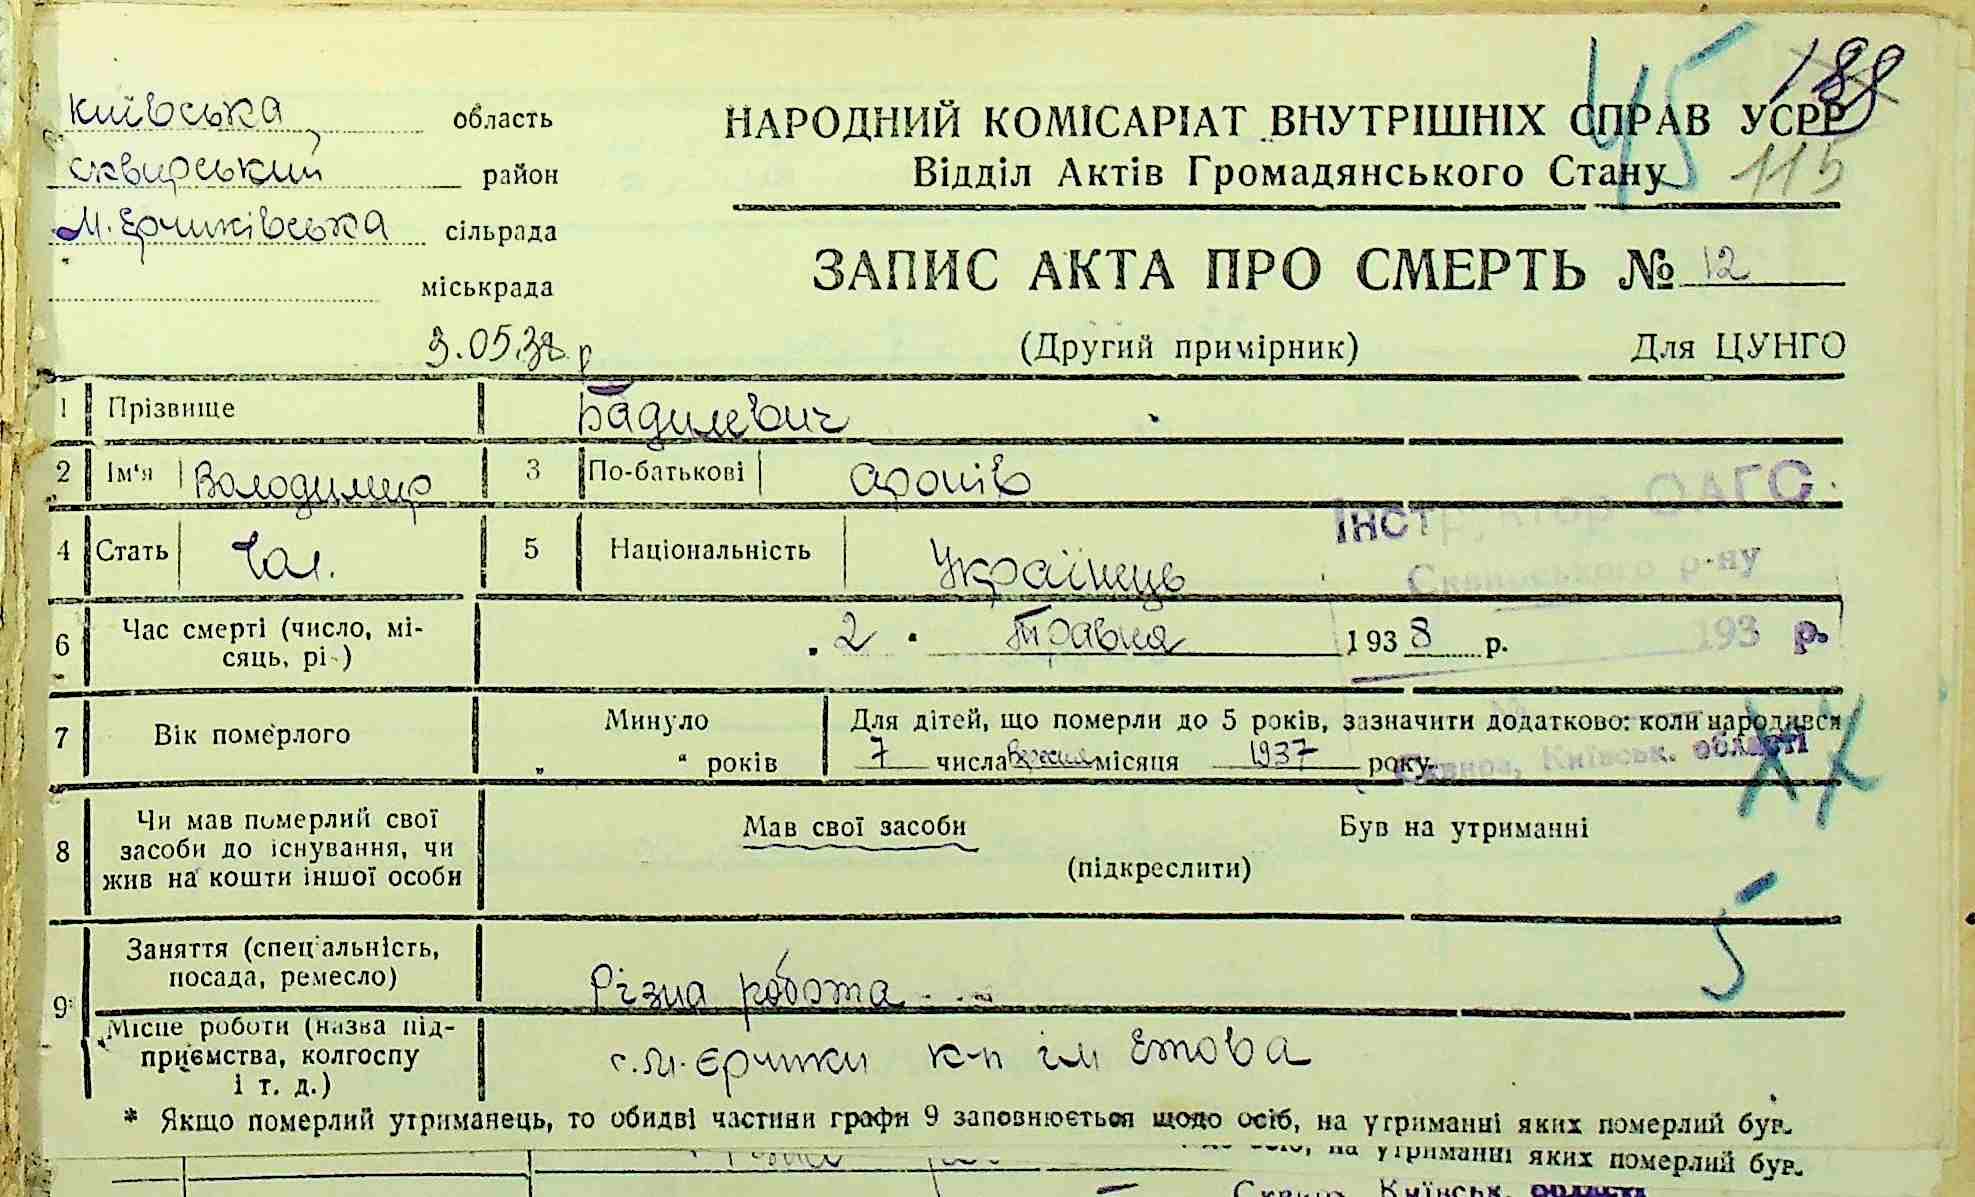 45 188
115
Київська область
Сквирський район
М. Єрчиківська сільрада
міськрада
НАРОДНИЙ КОМІСАРІАТ ВНУТРІШНІХ СПРАВ УСРР
Відділ Актів Громадянського Стану
ЗАПИС АКТА ПРО СМЕРТЬ № 12
3.05.38 р
(Другий примірник) Для ЦУНГО
1 Прізвище Бадилевич
2 Ім'я Володимир 3 По-батькові
Інструктор ОАГС
4 Стать Чол. 5 Національність Українець
Сквирського р-ну
6 Час смерті (число, мі-
сяць, рі ) „ 2 " Травня 1938 р.
193 р.
7 Вік померлого Минуло Для дітей, що померли до 5 років, зазначити додатково: коли народився
„ " років 7 числа місяця 1937 року.
Сквира, Київськ. області
8 Чи мав померлий свої
засоби до існування, чи
жив на кошти іншої особи
Мав свої засоби Був на утриманні
(підкреслити)
5
9 Заняття (спеціальність,
посада, ремесло) Різна робота
Місце роботи (назва під-
приємства, колгоспу
і т. д.) с. М. Єрчики к-п ім
* Якщо померлий утриманець, то обидві частини графи 9 заповнюється щодо осіб, на утриманні яких померлий був.
осіб, на утриманні яких померлий був.
Сквира, Київськ. області